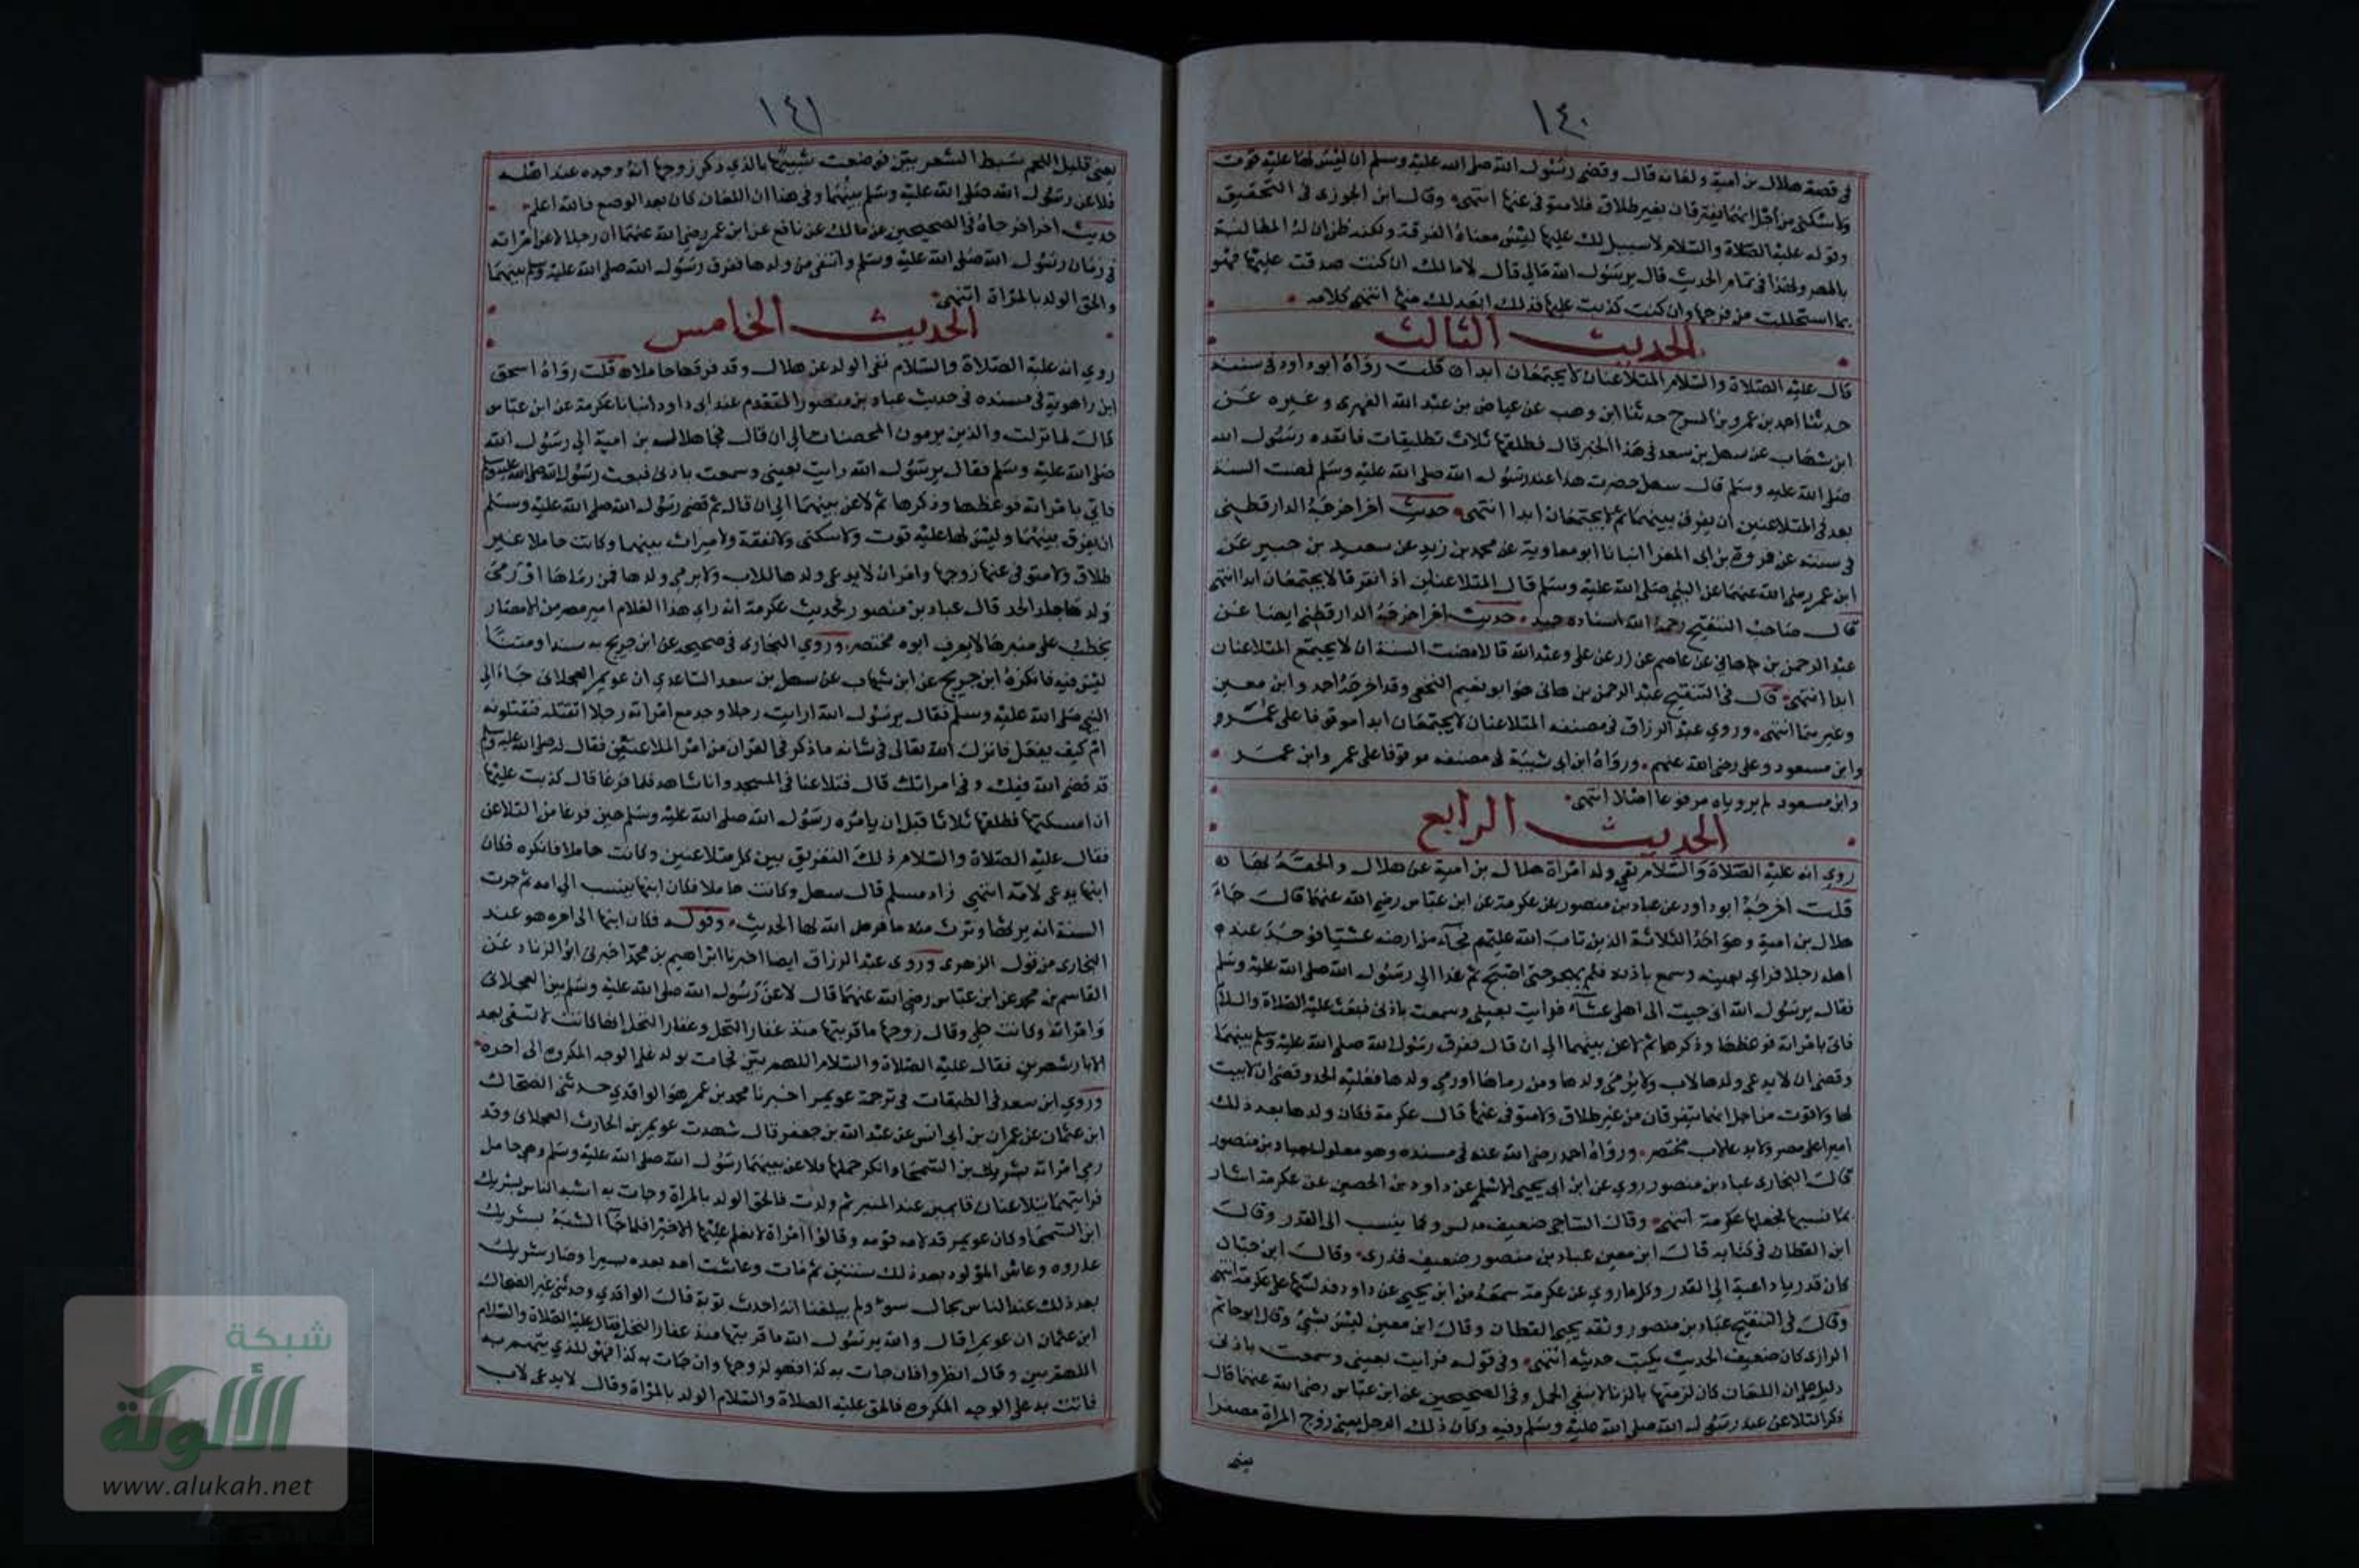 ١٤٠
في قصة هلال بن أمية ولعانه قال وقضى رسول الله صلى الله عليه وسلم ان ليس لها عليه قوت
ولا سكنى من أجل انهما يفترقان بغير طلاق فلا متوفى عنها انتهى وقال ابن الجوزى فى التحقيق
وقوله عليه الصلاة والسلام لا سبيل لك عليها ليس معناه الفرقة ولكنه ظن ان له المطالبة
بالمهر ولهذا فى تمام الحديث قال يرسول الله مالي قال لا مالك ان كنت صدقت عليها فهو
بما استحللت من فرجها وان كنت كذبت عليها فذلك ابعد لك منها انتهى كلامه
الحديث الثالث
قال عليه الصلاة والسلام المتلاعنان لا يجتمعان ابدا قلت رواه ابو داود فى سننه
حدثنا احمد بن عمرو بن السرح حدثنا ابن وهب عن عياض بن عبد الله الفهرى وغيره عن
ابن شهاب عن سهل بن سعد فى هذا الخبر قال فطلقها ثلاث تطليقات فانفذه رسول الله
صلى الله عليه وسلم قال سهل حضرت هذا عند رسول الله صلى الله عليه وسلم فمضت السنة
بعد فى المتلاعنين ان يفرق بينهما ثم لا يجتمعان ابدا انتهى حديث اخر اخرجه الدارقطنى
فى سننه عن فروة بن ابى المغرا انبانا ابو معاوية عن محمد بن زيد عن سعيد بن جبير عن
ابن عمر رضى الله عنهما عن النبي صلى الله عليه وسلم قال المتلاعنان اذا تفرقا لا يجتمعان ابدا انتهى
قال صاحب التنقيح رحمه الله اسناده جيد حديث اخر اخرجه الدارقطنى ايضا عن
عبد الرحمن بن هانى عن عاصم عن زر عن على وعبد الله قالا مضت السنة ان لا يجتمع المتلاعنان
ابدا انتهى قال فى التنقيح عبد الرحمن بن هانى هو ابو نعيم النخعى وقد اخرجه احمد وابن معين
وغيرهما انتهى وروي عبد الرزاق فى مصنفه المتلاعنان لا يجتمعان ابدا موقوفا على عمر و
وابن مسعود وعلى رضى الله عنهم ورواه ابن ابى شيبة فى مصنفه موقوفا على عمر وابن عمر
وابن مسعود لم يروياه مرفوعا اصلا انتهى
الحديث الرابع
روي انه عليه الصلاة والسلام نفى ولد امراة هلال بن امية عن هلال والحقه بها
قلت اخرجه ابو داود عن عباد بن منصور عن عكرمة عن ابن عباس رضى الله عنهما قال جاء
هلال بن امية وهو احد الثلاثة الذين تاب الله عليهم فجاء من ارضه عشيا فوجد عند
اهله رجلا فراى بعينه وسمع باذنه فلم يهجه حتى اصبح ثم غدا الى رسول الله صلى الله عليه وسلم
فقال يرسول الله انى جيت الى اهلى عشاء فرايت بعينى وسمعت باذنى فبعث عليه الصلاة والسلام
فاتى بامراته فوعظها وذكرها ثم لاعن بينهما الى ان قال ففرق رسول الله صلى الله عليه وسلم بينهما
وقضى ان لا يدعى ولدها لاب ولا يرمى ولدها ومن رماها او رمى ولدها فعليه الحد وقضى ان لا بيت
لها ولا قوت من اجل انهما يتفرقان من غير طلاق ولا متوفى عنها قال عكرمة فكان ولدها بعد ذلك
اميرا على مصر ولا يدعى لاب مختصر ورواه احمد رضى الله عنه فى مسنده وهو معلول بعباد بن منصور
قال البخارى عباد بن منصور روي عن ابن ابى يحيى الاسلمى عن داود بن الحصين عن عكرمة اشيا
ربما نسيها فجعلها عكرمة انتهى وقال الساجى ضعيف مدلس وكان ينسب الى القدر وقال
ابن القطان فى كتابه قال ابن معين عباد بن منصور ضعيف قدرى وقال ابن حبان
كان قدريا داعية الى القدر وكل ما روي عن عكرمة سمعه من ابن يحيى عن داود فدلسها على عكرمة انتهى
وقال فى التنقيح عباد بن منصور وثقه يحيى القطان وقال ابن معين ليس بشئ وقال ابو حاتم
الرازى كان ضعيف الحديث يكتب حديثه انتهى وفى قوله فرايت بعينى وسمعت باذنى
دليل على ان اللعان كان لرميها بالزنا لا بنفى الحمل وفى الصحيحين عن ابن عباس رضى الله عنهما قال
ذكر التلاعن عند رسول الله صلى الله عليه وسلم وفيه وكان ذلك الرجل يعنى زوج المراة مصفرا
يعنى
١٤١
يعنى قليل اللحم سبط الشعر بين فوضعت شبيها بالذي ذكر زوجها انه وجده عند اهله
فلاعن رسول الله صلى الله عليه وسلم بينهما وفى هذا ان اللعان كان بعد الوضع فالله اعلم
حديث اخر اخرجاه فى الصحيحين عن مالك عن نافع عن ابن عمر رضى الله عنهما ان رجلا لاعن امراته
فى زمان رسول الله صلى الله عليه وسلم وانتفى من ولدها ففرق رسول الله صلى الله عليه وسلم بينهما
والحق الولد بالمراة انتهى
الحديث الخامس
روي انه عليه الصلاة والسلام نفى الولد عن هلال وقد قذفها حاملا قلت رواه اسحق
ابن راهوية فى مسنده فى حديث عباد بن منصور المتقدم عند ابى داود انبانا عكرمة عن ابن عباس
قال لما نزلت والذين يرمون المحصنات الى ان قال فجا هلال بن امية الى رسول الله
صلى الله عليه وسلم فقال يرسول الله رايت بعينى وسمعت باذنى فبعث رسول الله صلى الله عليه وسلم
فاتي بامراته فوعظها وذكرها ثم لاعن بينهما الى ان قال ثم قضى رسول الله صلى الله عليه وسلم
ان يفرق بينهما وليس لها عليه قوت ولا سكنى ولا نفقة ولا ميراث بينهما وكانت حاملا غير
طلاق ولا متوفى عنها زوجها وامر ان لا يدعى ولدها للاب ولا يرمى ولدها فمن رماها او رمى
ولدها جلد الحد قال عباد بن منصور فحديث عكرمة انه راى هذا الغلام امير مصر من الامصار
يخطب على منبرها لا يعرف ابوه مختصر وروي البخارى فى صحيحه عن ابن جريج به سندا ومتنا
ليس فيه فانكره ابن جريج عن ابن شهاب عن سهل بن سعد الساعدي ان عويمر العجلانى جاء الى
النبي صلى الله عليه وسلم فقال يرسول الله ارايت رجلا وجد مع امراته رجلا اتقتله فتقتلونه
ام كيف يفعل فانزل الله تعالى فى شانه ما ذكر فى القران من امر الملاعنين فقال له صلى الله عليه وسلم
قد قضى الله فيك وفى امراتك قال فتلاعنا فى المسجد وانا شاهد فلما فرغا قال كذبت عليها
ان امسكتها فطلقها ثلاثا قبل ان يامره رسول الله صلى الله عليه وسلم حين فرغا من التلاعن
فقال عليه الصلاة والسلام ذلك التفريق بين كل متلاعنين وكانت حاملا فانكره فكان
ابنها يدعى لامه انتهى زاد مسلم قال سهل وكانت حاملا فكان ابنها ينسب الى امه ثم جرت
السنة انه يرثها وترث منه ما فرض الله لها الحديث وقوله فكان ابنها الى اخره هو عند
البخارى من قول الزهرى وروى عبد الرزاق ايضا اخبرنا ابراهيم بن محمد اخبرنى ابو الزناد عن
القاسم بن محمد عن ابن عباس رضى الله عنهما قال لاعن رسول الله صلى الله عليه وسلم بين العجلانى
وامراته وكانت حبلى وقال زوجها ما قربتها منذ عفار النخل وعفار النخل انها كانت لا تسقى بعد
الابار شهرين فقال عليه الصلاة والسلام اللهم بين فجات بولد على الوجه المكروه الى اخره
وروي ابن سعد فى الطبقات فى ترجمة عويمر اخبرنا محمد بن عمر هو الواقدي حدثنى الضحاك
ابن عثمان عن عمران بن ابى انس عن عبد الله بن جعفر قال شهدت عويمر بن الحارث العجلانى وقد
رمى امراته بشريك بن السحما وانكر حملها فلاعن بينهما رسول الله صلى الله عليه وسلم وهي حامل
فرايتهما يتلاعنان قايمين عند المنبر ثم ولدت فالحق الولد بالمراة وجات به اشبه الناس بشريك
ابن السحما وكان عويمر قد لامه قومه وقالوا امراة لا نعلم عليها الا خيرا فلما جا الشبه بشريك
عذروه وعاش المولود بعد ذلك سنتين ثم مات وعاشت امه بعده يسيرا وصار شريك
بعد ذلك عند الناس بحال سوء ولم يبلغنا انه احدث توبة قال الواقدي وحدثنى غير الضحاك
ابن عثمان ان عويمرا قال والله يرسول الله ما قربتها منذ عفار النخل فقال عليه الصلاة والسلام
اللهم بين وقال انظروا فان جات به كذا فهو لزوجها وان جات به كذا فهو للذي يتهم به
فاتت به على الوجه المكروه فالحق عليه الصلاة والسلام الولد بالمراة وقال لا يدعى لاب
شبكة
الألوكة
www.alukah.net